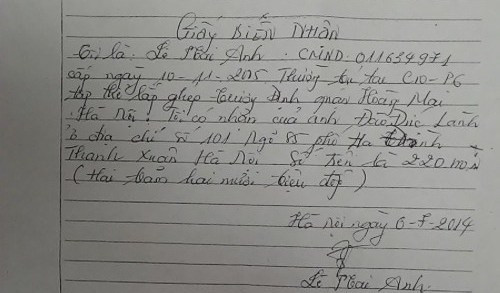 Giấy Biên Nhận
Tôi là: Lê Mai Anh. CMND. 011634971
cấp ngày 10-11-2005 Thường trú tại C10-P6
tập thể lắp ghép Trương Định quận Hoàng Mai
Hà Nội. Tôi có nhận của anh Đào Đức Lành
ở địa chỉ số 101 Ngõ 85 phố Hạ Đình
Thanh Xuân Hà Nội Số tiền là 220
(Hai trăm hai mươi triệu
Hà Nội ngày 6-7-2014
Lê Mai Anh